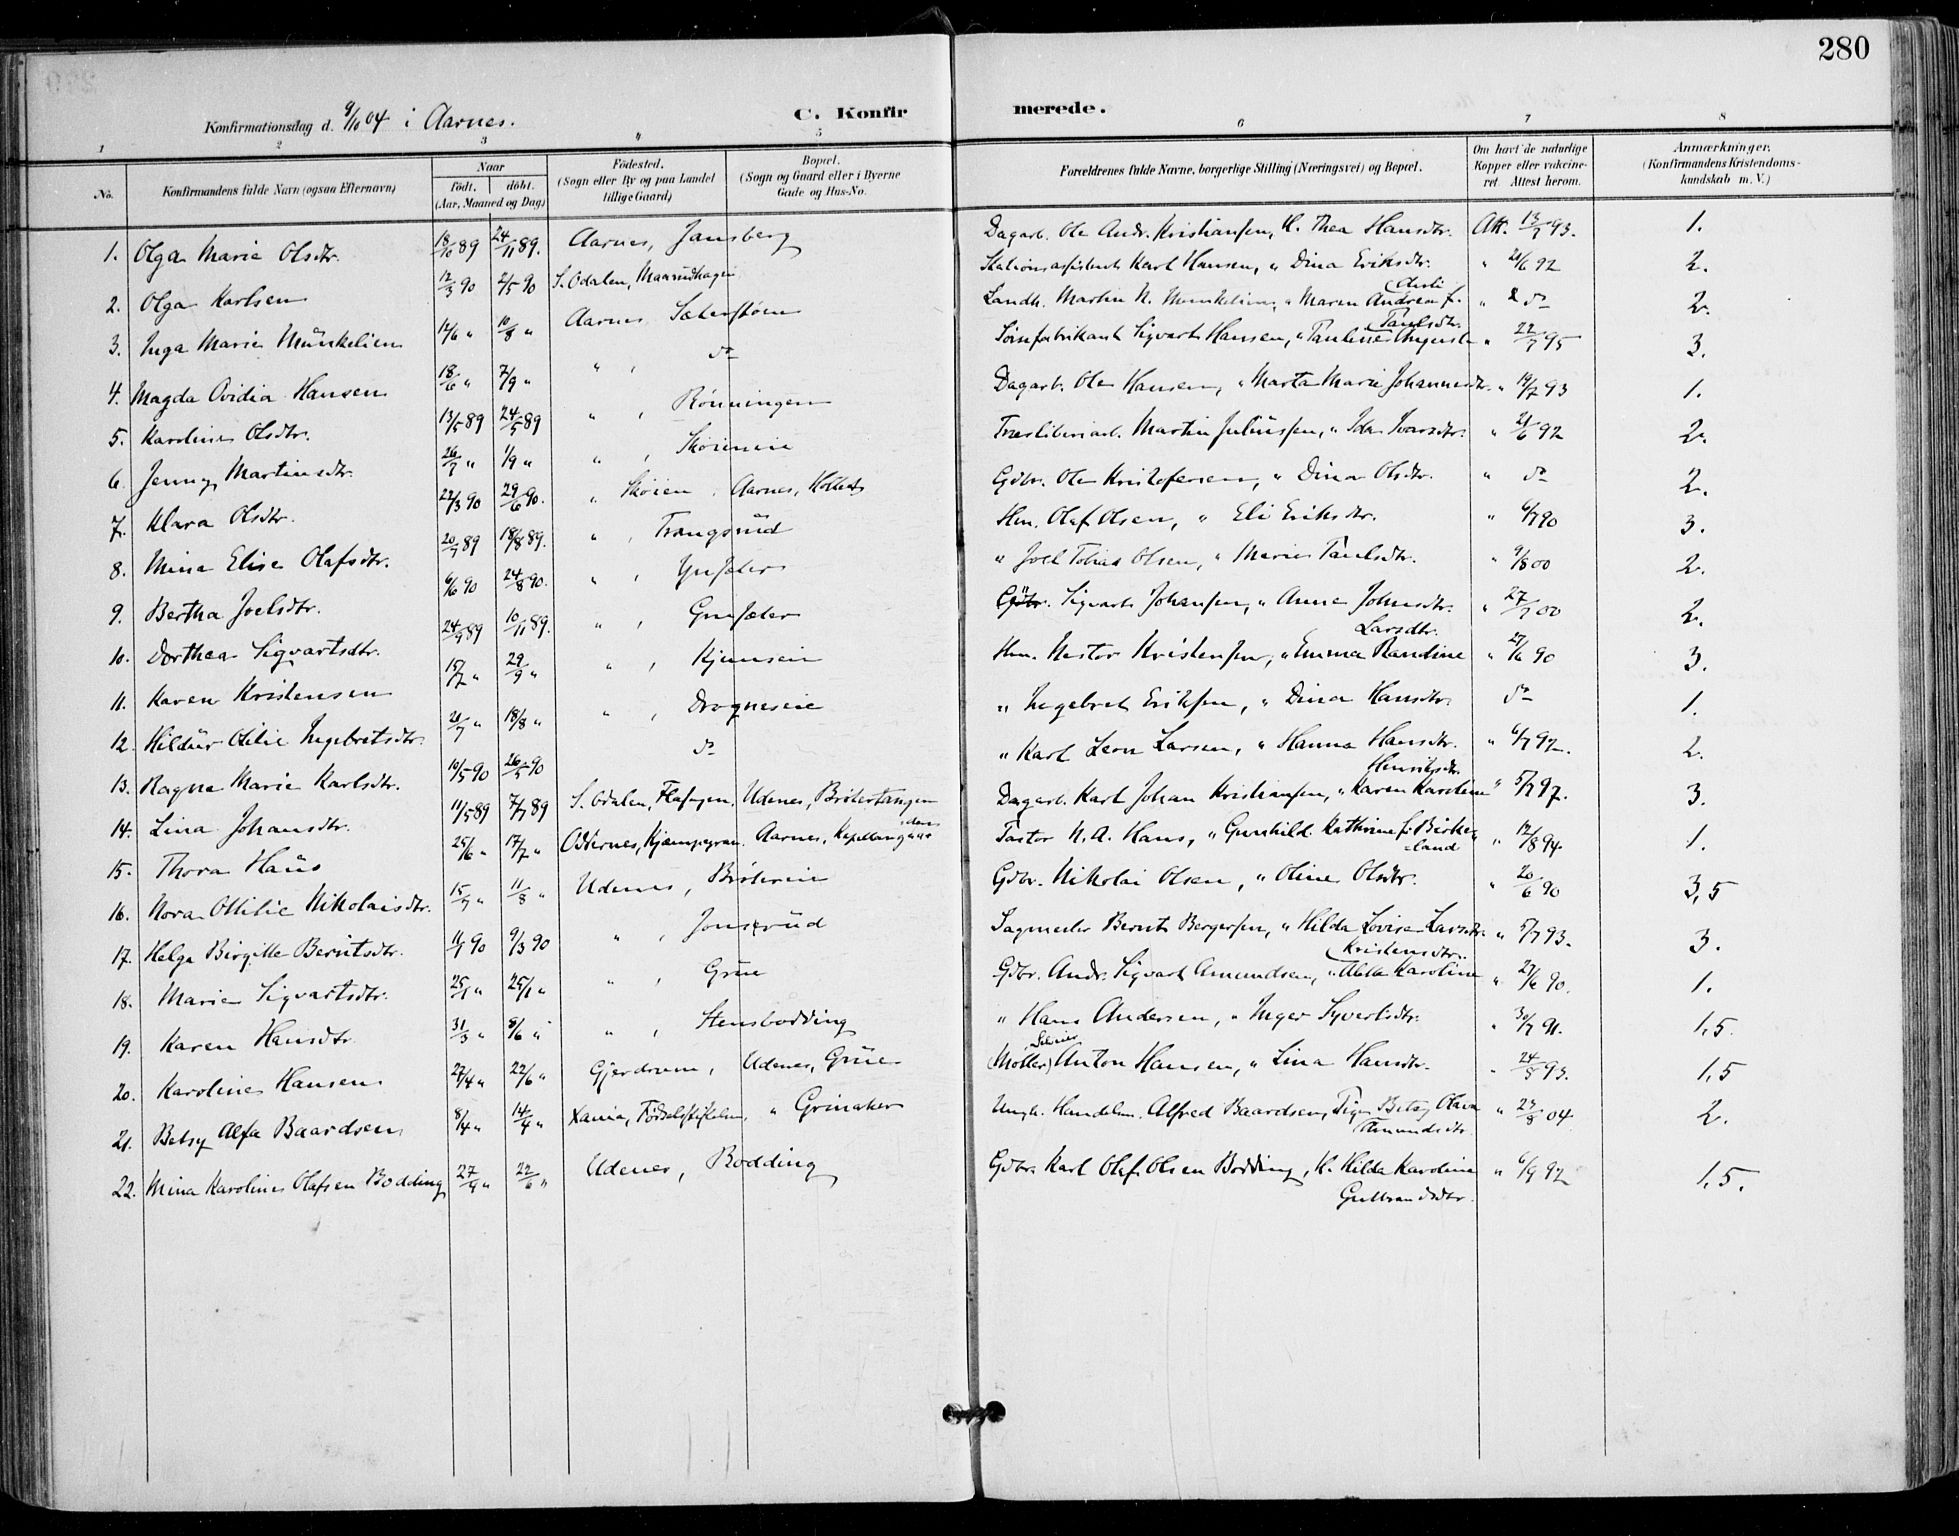 280
Konfirmationsdag d. 9/10 04 i Aarnes.
C. Konfirmerede.
1 2 3 " 5 6 7 8
No. Konfirmandens fulde Navn (ogsaa Efternavn) Naar født. døbt. (Aar, Maaned og Dag) Fødested. (Sogn eller By og paa Landet tillige Gaard) Bopæl. (Sogn og Gaard eller i Byerne Gade og Hus-No. Forældrenes fulde Navne, borgerlige Stilling (Næringsvei) og Bopæl. Om havt de naturlige Kopper eller vakcineret. Attest herom. Anmærkninger. (Konfirmandens Kristendomskundskab m. V.)
1. Olga Marie Olsdtr. 18/10 89 24/11 89. Aarnes, Jansberg Dagarb. Ole Andr. Kristiansen, H. Thea Hansdtr. Att. 13/7 93. 1.
2. Olga Karlsen 12/3 90 2/5 90 S. Odalen, Maarudhagen Stationsassistent Karl Hansen, " Dina Eriksdtr. " 21/6 92 2.
3. Inga Marie Münkelien 12/6 " 10/8 " Aarnes Sæterstøen Landh. Martin N. Munkelien, " Maren Andrea f. " do 2.
4. Magda Ovidia Hansen 18/6 " 7/9 " " , do Sigvart Hansen, " Pauline Paulsdtr. " 22/7 95 3.
5. Karoline Olsdtr. 13/5 89 24/5 89 " , Rønningen Dagarb. Ole Hansen, " Marta Marie Johannesdtr. " 19/7 93 1.
6. Jenny Martinsdtr. 26/7 " 1/9 " " , Skøieneie Martin Juliussen, " Ida Ivarsdtr. " 21/6 92 2.
7. Klara Olsdtr. 22/3 90 29/6 90. " Skøien, Aarnes, Gdbr. Ole Kristofersen, " Dina Olsdtr. " do 2.
8. Mina Elise Olafsdtr. 20/7 89 18/8 89. " , Trangsrud Hm. Olaf Olsen, " Eli Eriksdtr. " 6/7 90 3.
9. Bertha Joelsdtr. 6/6 90 24/8 90. " , " Joel Tobias Olsen, " Marie Paulsdtr. " 9/8 00 2.
10. Dorthea Sigvartsdtr. 24/9 89 10/11 89. " , Sigvart Johansen, " Anne Johnsdtr. " 27/7 00 2.
11. Karen Kristensen 15/7 " 29/9 " " , Hm. Nestor Kristensen, " Emma Randine Larsdtr. " 27/6 90 3.
12. Hildür Otilie Ingebretsdtr. 20/7 " 18/8 " " , Drogneseie " Ingebret Eriksen, " Dina Hansdtr. do 1.
13. Ragna Marie Karlsdtr. 10/5 90 26/5 90 do " Karl Leon Larsen, " Hanna Hansdtr. " 6/7 92. 2.
14. Lina Johansdtr. 11/5 89 7/7 89 S. Odalen, Udenes, Brøtertangen Dagarb. Karl Johan Kristiansen, " Karen Karoline Henriksdtr. " 5/7 92. 3.
15. Thora Haüs 25/6 " 17/7 " Aarnes, Pastor N. A. Haus, " Gunhild Kathrine f. Birkeland " 12/8 94. 1.
16. Nora Otilie Nikolaisdtr. 15/7 " 11/8 " Udenes, Gdbr. Nikolai Olsen, " Oline Olsdtr. " 20/6 90 3,5
17. Helga Birgitte Berntsdtr. 11/1 90 9/3 90 " , Jonsrud Sagmester Bernt Bergersen, " Hilda Lovise Larsdtr. " 5/7 93. 3.
18. Marie Sigvartsdtr. 25/1 " 25/1 " " , Grue Gdbr. Andr. Sigvart Amundsen, " Karoline Kristensdtr. " 27/6 90. 1.
19. Karen Hansdtr. 31/3 " 8/6 " " , Stensbodding " Hans Andersen, " Inger Syvertsdtr. " 3/7 91. 1,5
20. Karoline Hansen 27/4 " 22/6 " Gjerdrum, Udenes, Grüe Møller Anton Hansen, " Lina Hansdtr. " 24/8 93. 1,5
21. Betsy Alfa Baardsen 8/4 " 14/4 " Xania, Fødselsstiftelsen, " Grinaker Ungk. Handelsm. Alfred Baardsen, Pige Betsy Olava Amundsdtr. " 23/8 04. 2.
22. Mina Karoline Olafsen Bodding 27/4 " 22/6 " Udenes, Bodding Gdbr. Karl Olaf Olsen Bodding, H. Hilda Karoline Gulbrandsdtr. " 6/9 92 1,5.